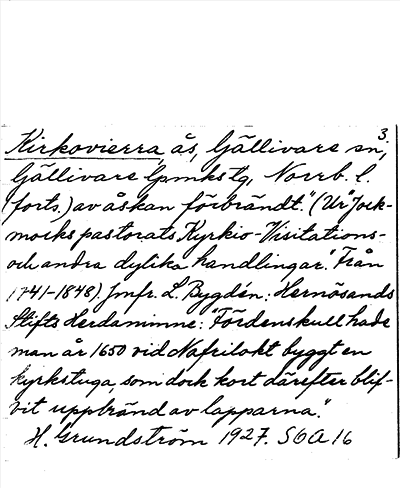 3.
Kirkovierra, ås, Gällivare sn,
Gällivare lpmkstg, Norrb. l.
(forts.) av åskan förbrändt." (Ur "Jock-
mocks pastorats Kyrkio-Visitations-
och andra dylika handlingar." Från
1741-1848). Jmfr. L. Bygdén. Hernösands
Stifts Herdaminne: "Fördenskull hade
man år 1650 vid Nafrilokt byggt en
kyrkstuga, som dock kort därefter blif-
vit uppbränd av lapparna."
H. Grundström 1927. SOA 16